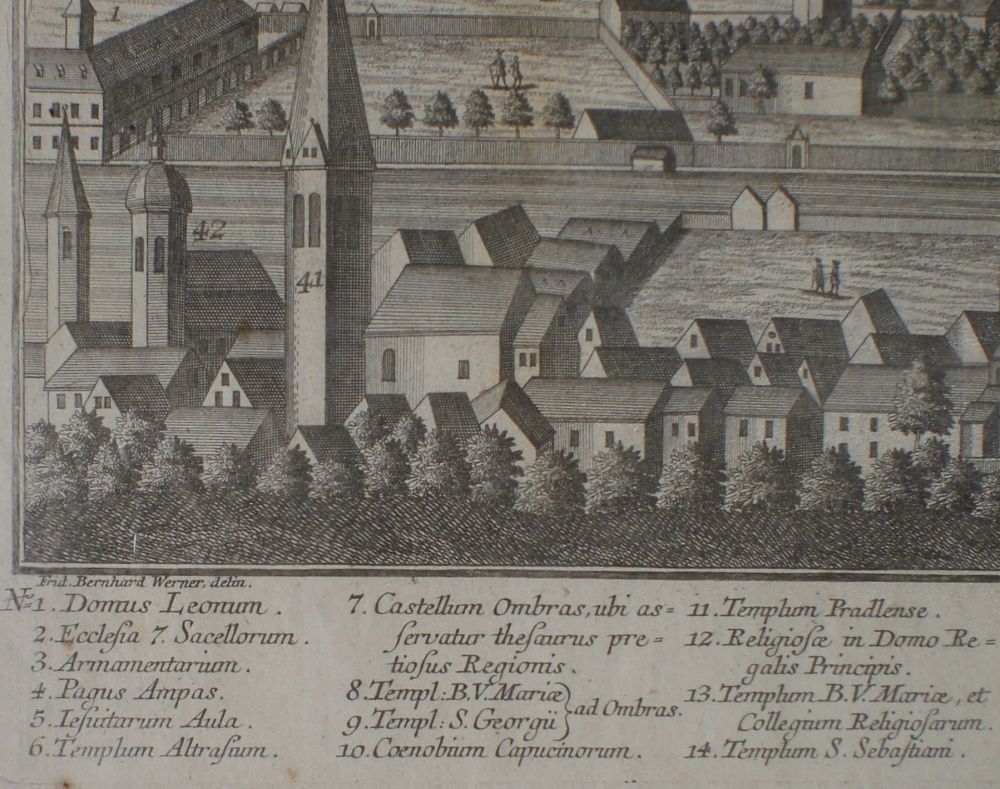 1
42
41
Frid. Bernhard Werner, delin.
No 1. Domus Leonum.
2. Ecclesia 7. Sacellorum.
3. Armamentarium.
4. Pagus Ampas.
5. Iesuitarum Aula.
6. Templum Altrasium.
7. Castellum Ombras, ubi as=
servatur thesaurus pre=
tiosus Regionis.
8. Templ: B.V. Mariæ
9. Templ: S. Georgii
ad Ombras.
10. Coenobium Capucinorum.
11. Templum Pradlense.
12. Religiosæ in Domo Re=
galis Principis.
13. Templum B.V. Mariæ, et
Collegium Religiosarum.
14. Templum S. Sebastiani.